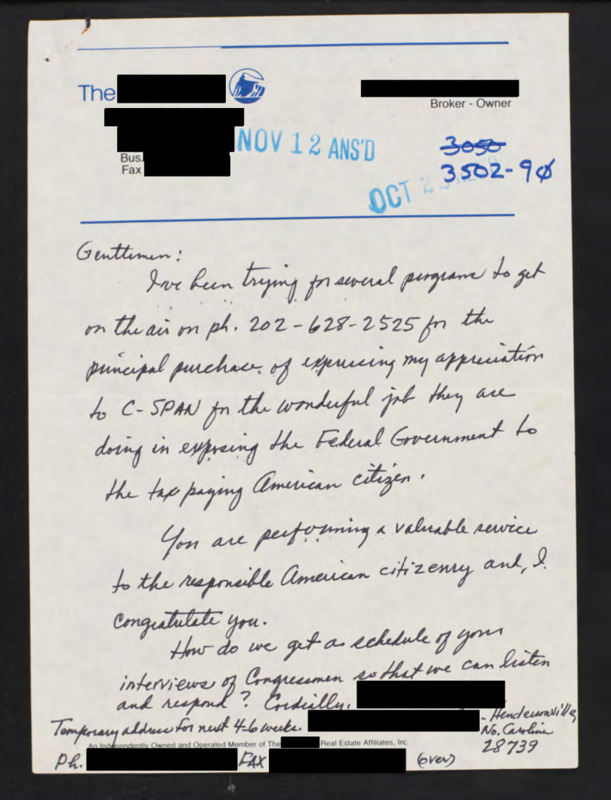 The
Broker - Owner
Bus.
Fax
NOV 12 ANS'D
3050
3502-90
OCT 2
Gentlemen:
I've been trying for several programs to get
on the air on ph. 202-628-2525 for the
principal purchace of expressing my appreciation
to C-SPAN for the wonderful job they are
doing in exposing the Federal Government to
the tax paying American citizen.
You are performing a valuable service
to the responsible American citizenry and, I
congratulate you.
How do we get a schedule of your
interviews of Congressmen so that we can listen
and respond? Cordially,
Temporary address for next 4-6 weeks.
- Hendersonville,
No. Carolina
28739
An Independently Owned and Operated Member of The Real Estate Affiliates, Inc.
Ph. FAX (over)